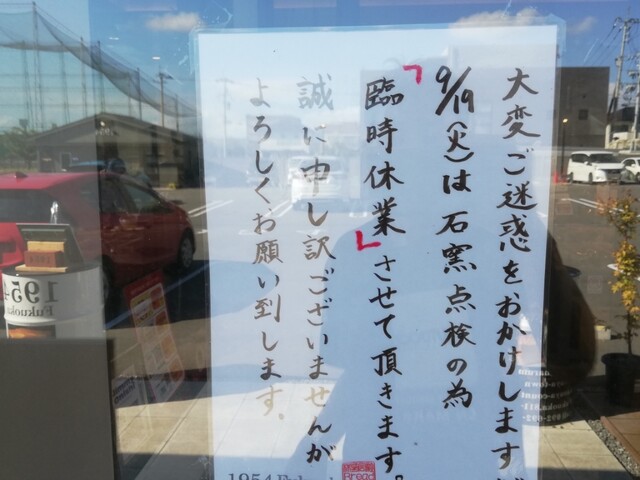 大変ご迷惑をおかけしますが
9/19(火)は石窯点検の為
「臨時休業」させて頂きます。
誠に申し訳ございませんが
よろしくお願い到します。
1954
Fukuoka
Bread
1954 Fukuoka